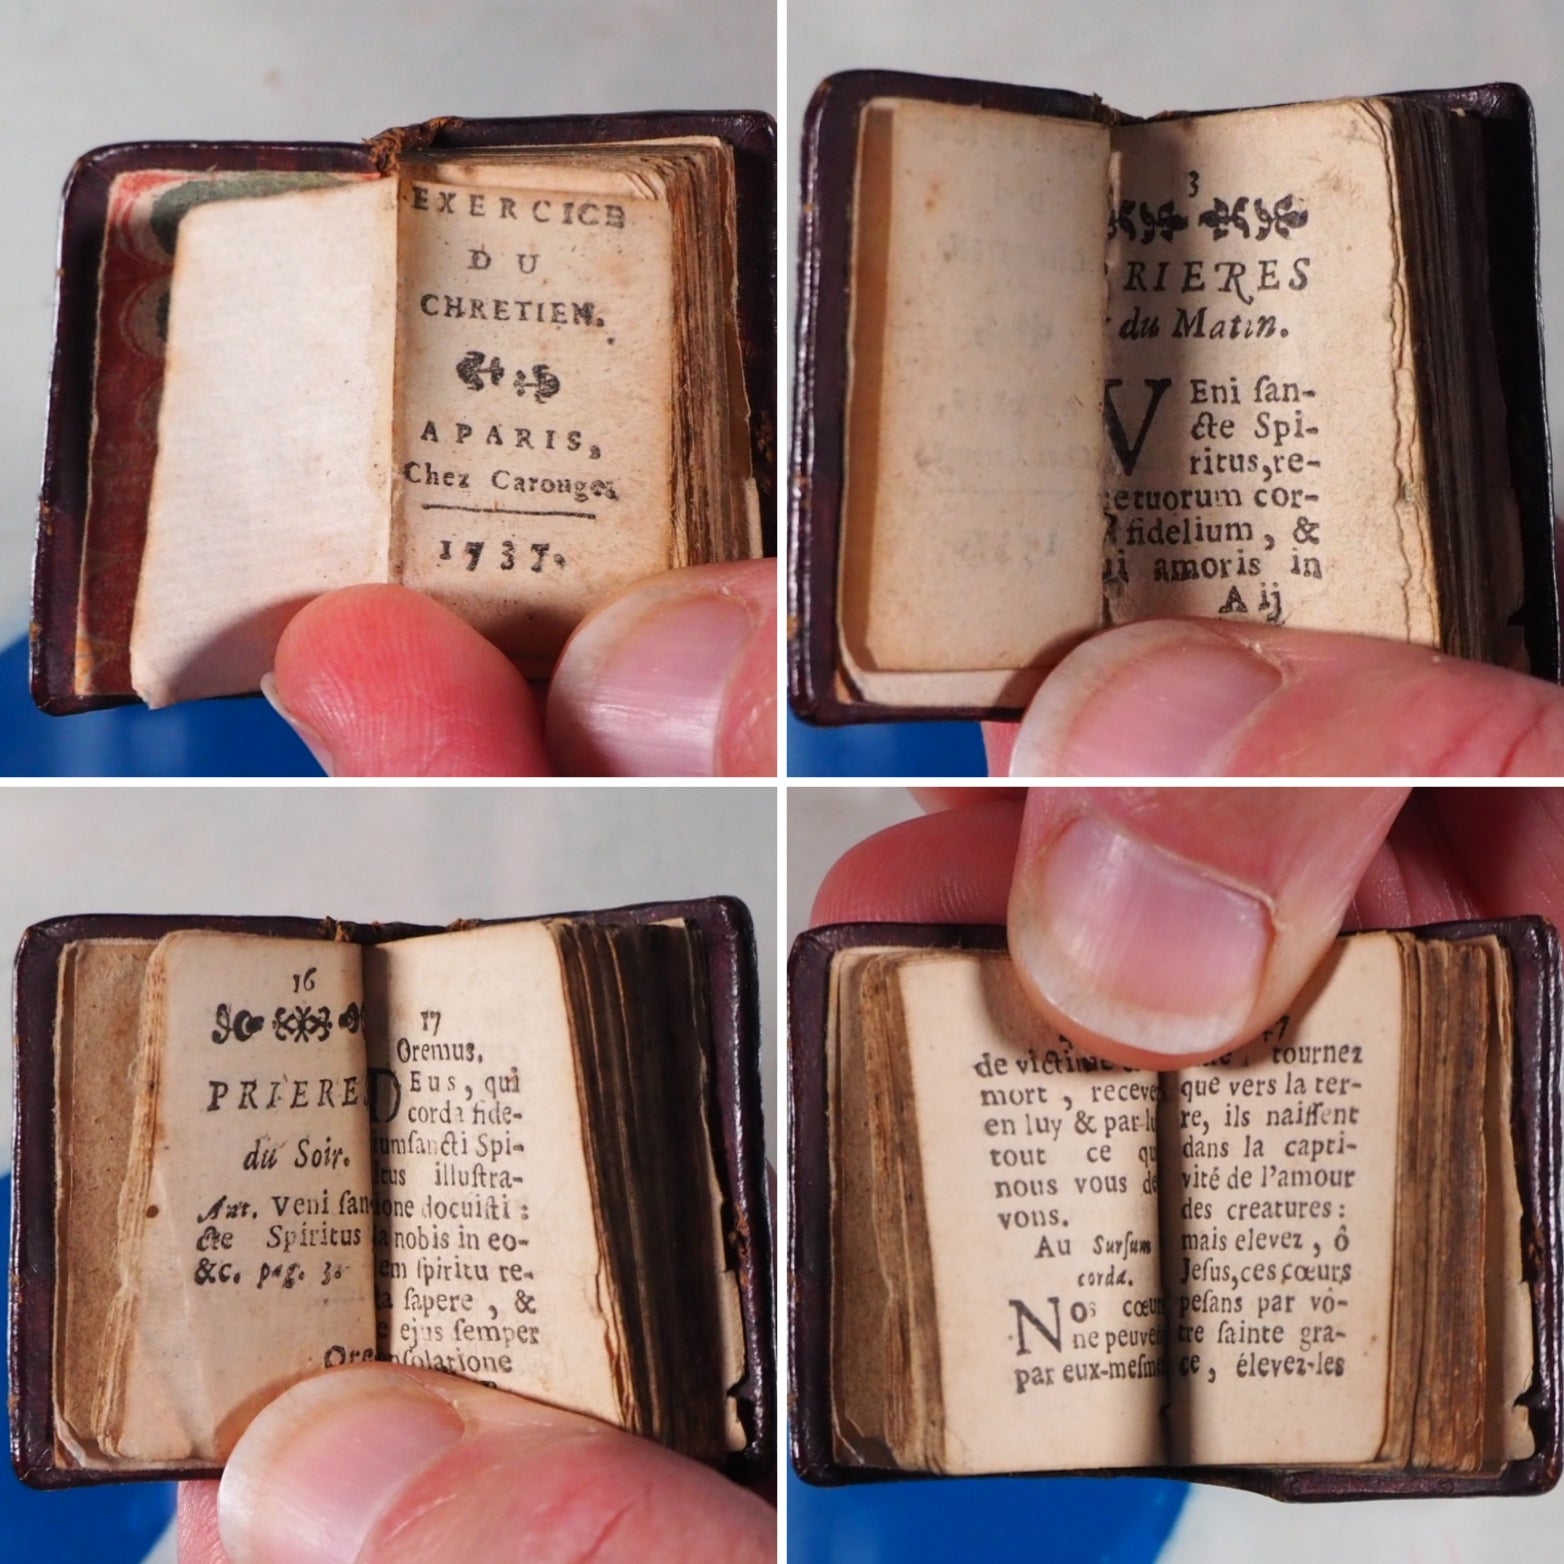 EXERCICE
DU
CHRETIEN.
A PARIS,
Chez Carouge,
1737.
3
RIERES
du Matin.
VEni ſan-
cte Spi-
ritus, re-
etuorum cor-
fidelium, &
ui amoris in
A ij
16
PRIERES
du Soir.
Ant. Veni ſan-
cte Spiritus
&c. pag. 3.
17
Oremus.
DEus, qui
corda fide-
iumſancti Spi-
itus illuſtra-
ione docuiſti :
a nobis in eo-
em ſpiritu re-
a ſapere, &
e ejus ſemper
nſolatione
de victime
mort, receve
en luy & par lu
tout ce qu
nous vous de
vons.
Au Surſum
corda.
Nos cœur
ne peuven
par eux-meſme
47
tournez
que vers la ter-
re, ils naiſſent
dans la capti-
vité de l'amour
des creatures :
mais elevez, ô
Jeſus, ces cœurs
peſans par vô-
tre ſainte gra-
ce, élevez-les